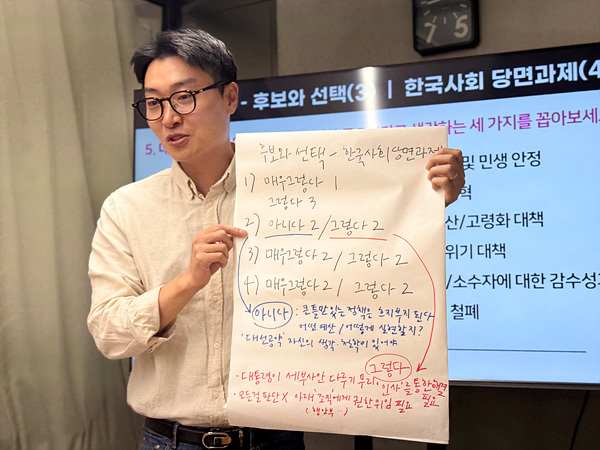 - 후보와 선택(3) | 한국사회 당면과제(4
하는 세 가지를 꼽아보세
5.
및 민생 안정
혁
산/고령화 대책
위기 대책
/소수자에 대한 감수성
철폐
7 5
후보와 선택 - 한국사회 당면과제
1) 매우그렇다 1
그렇다 3
2) 아니다 2 / 그렇다 2
3) 매우그렇다 2 / 그렇다 2
4) 매우그렇다 2 / 그렇다 2
아니다 : 큰틀만 있는 정책은 흐지부지 된다
어떤 예산 / 어떻게 실현할지?
'대선공약' 자신의 생각·철학이 있어야
그렇다
· 대통령이 세부사안 다루기 무리, '인사'를 통한 해결 필요
· 모든걸 판단 X 아래 '조직'에게 권한위임 필요
(행안부 ..)